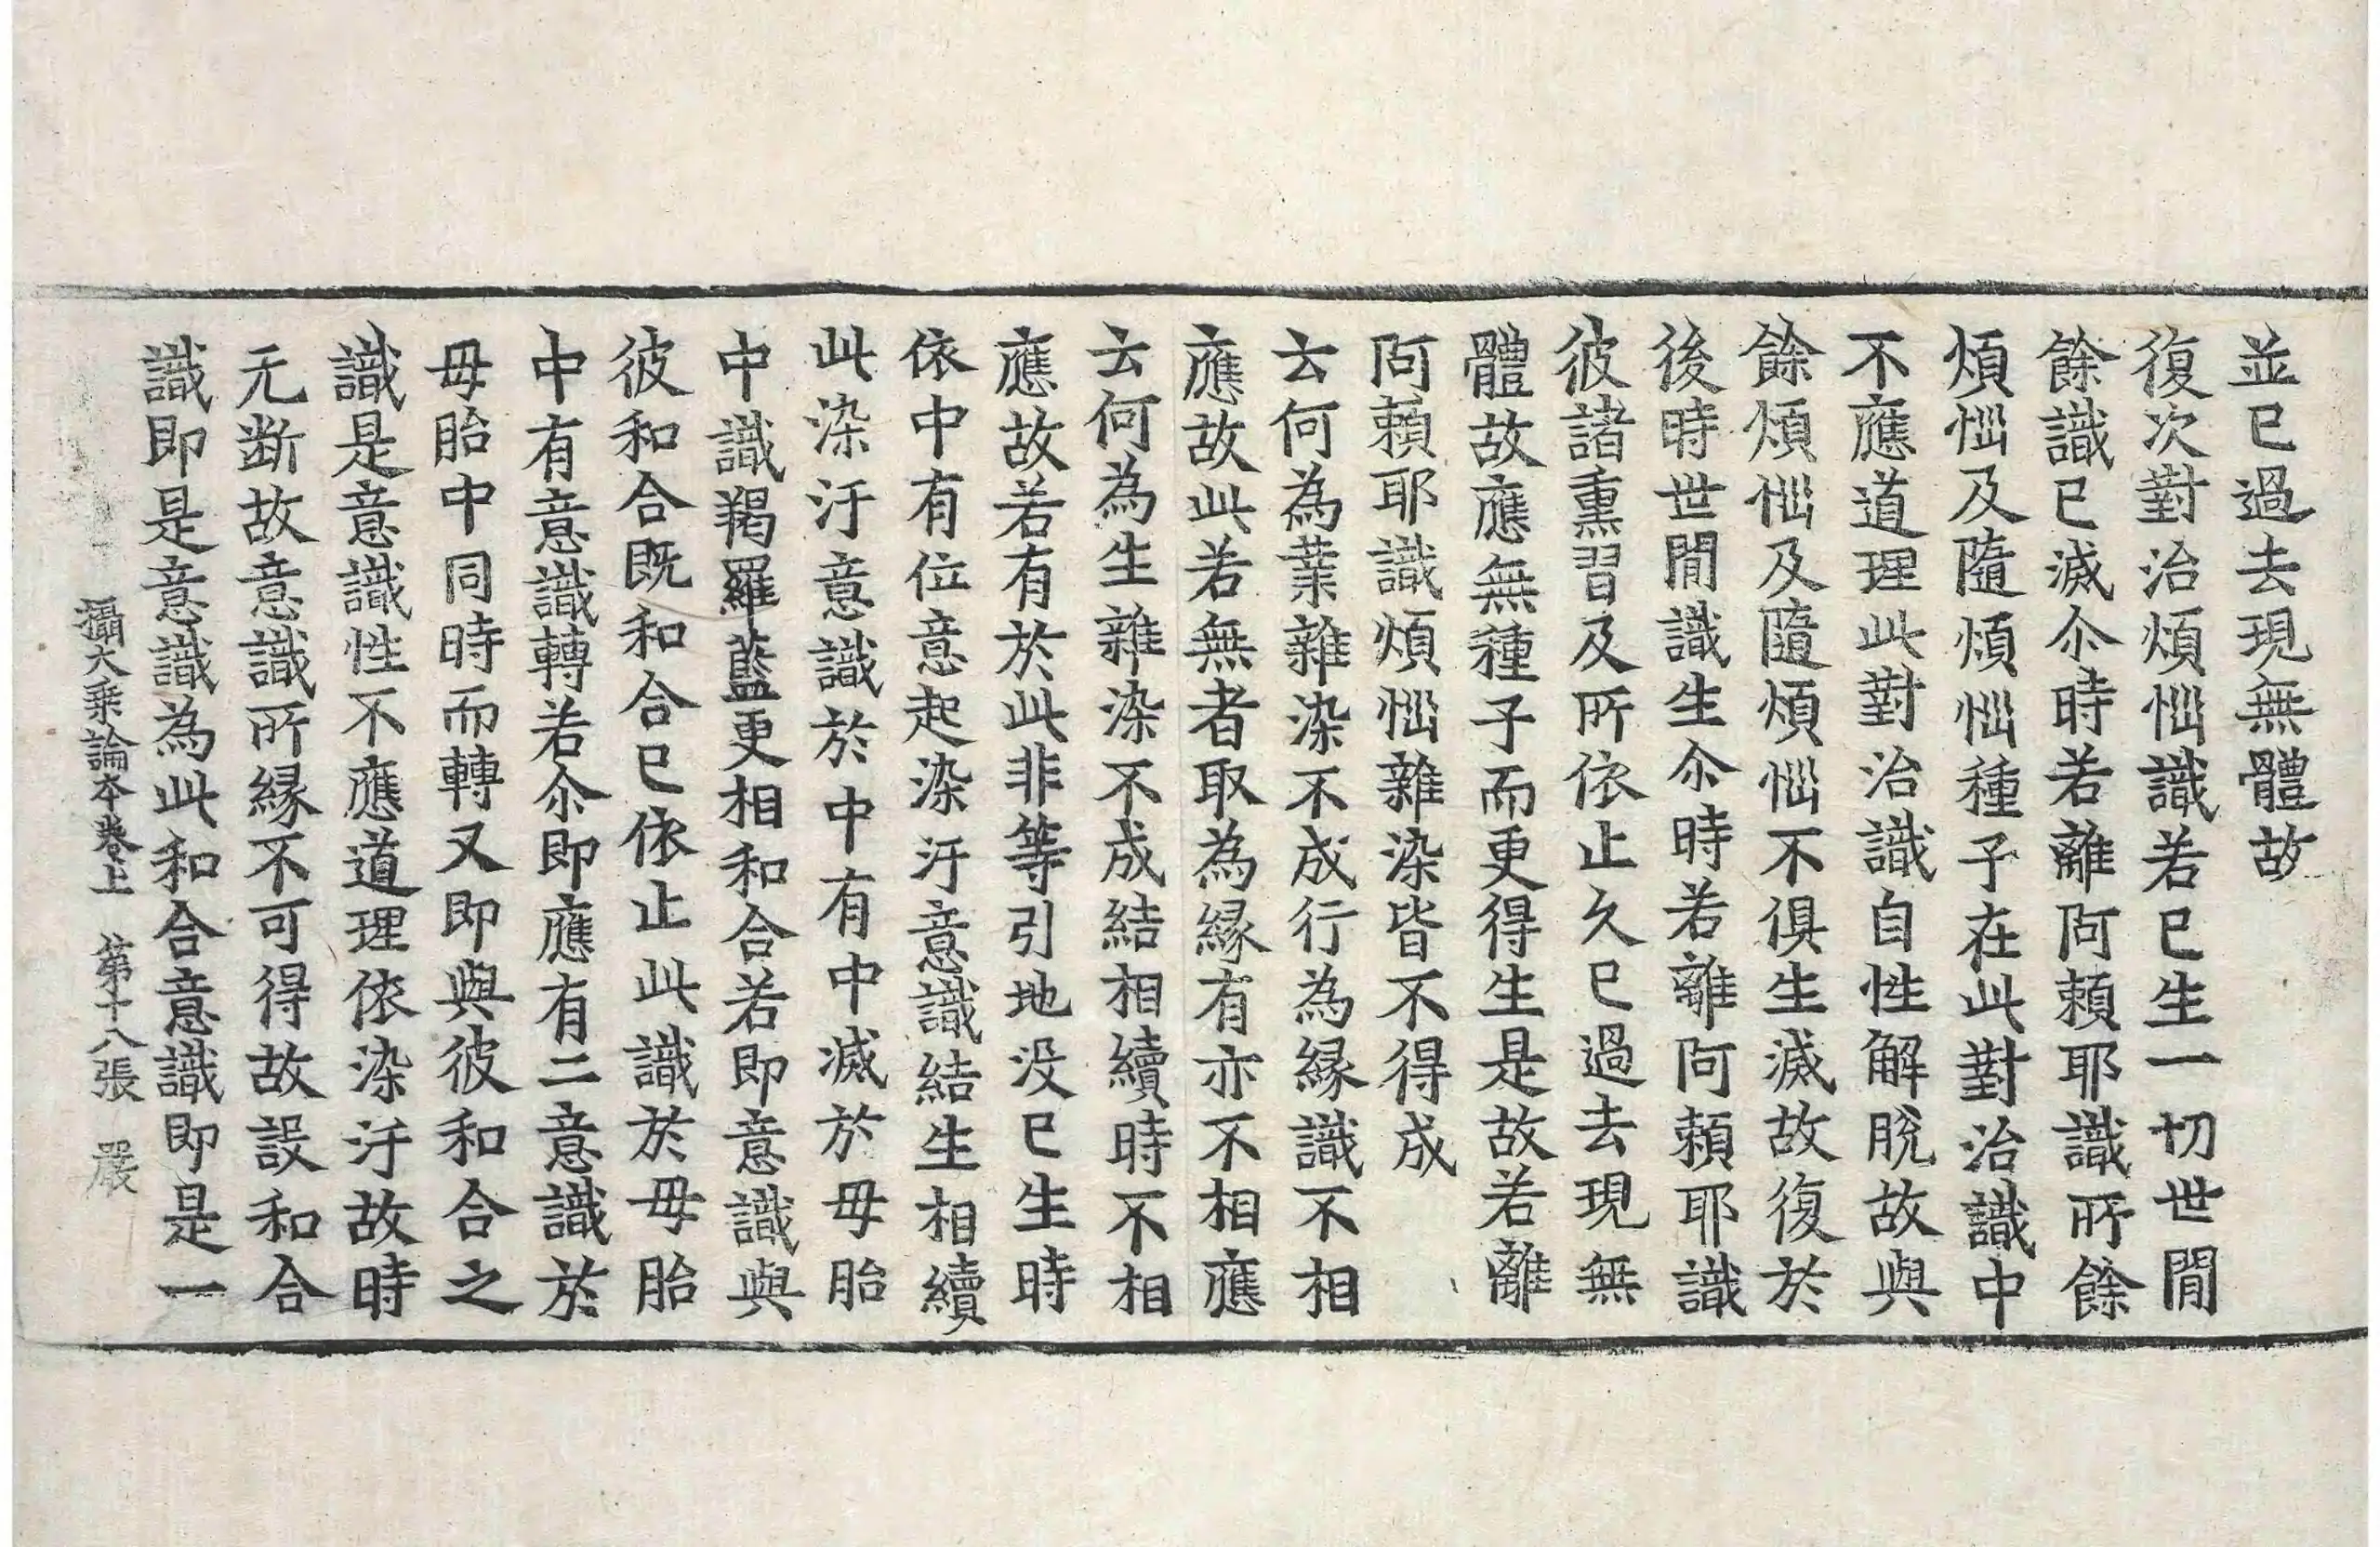 並已過去現無體故
復次對治煩惱識若已生一切世間
餘識已滅尒時若離阿賴耶識所餘
煩惱及隨煩惱種子在此對治識中
不應道理此對治識自性解脫故與
餘煩惱及隨煩惱不俱生滅故復於
後時世間識生尒時若離阿賴耶識
彼諸熏習及所依止久已過去現無
體故應無種子而更得生是故若離
阿賴耶識煩惱雜染皆不得成
云何為業雜染不成行為縁識不相
應故此若無者取為縁有亦不相應
云何為生雜染不成結相續時不相
應故若有於此非等引地没已生時
依中有位意起染汙意識結生相續
此染汙意識於中有中滅於母胎
中識羯羅藍更相和合若即意識與
彼和合既和合已依止此識於母胎
中有意識轉若尒即應有二意識於
母胎中同時而轉又即與彼和合之
識是意識性不應道理依染汙故時
无断故意識所縁不可得故設和合
識即是意識為此和合意識即是一
攝大乗論本卷上 第十八張 嚴